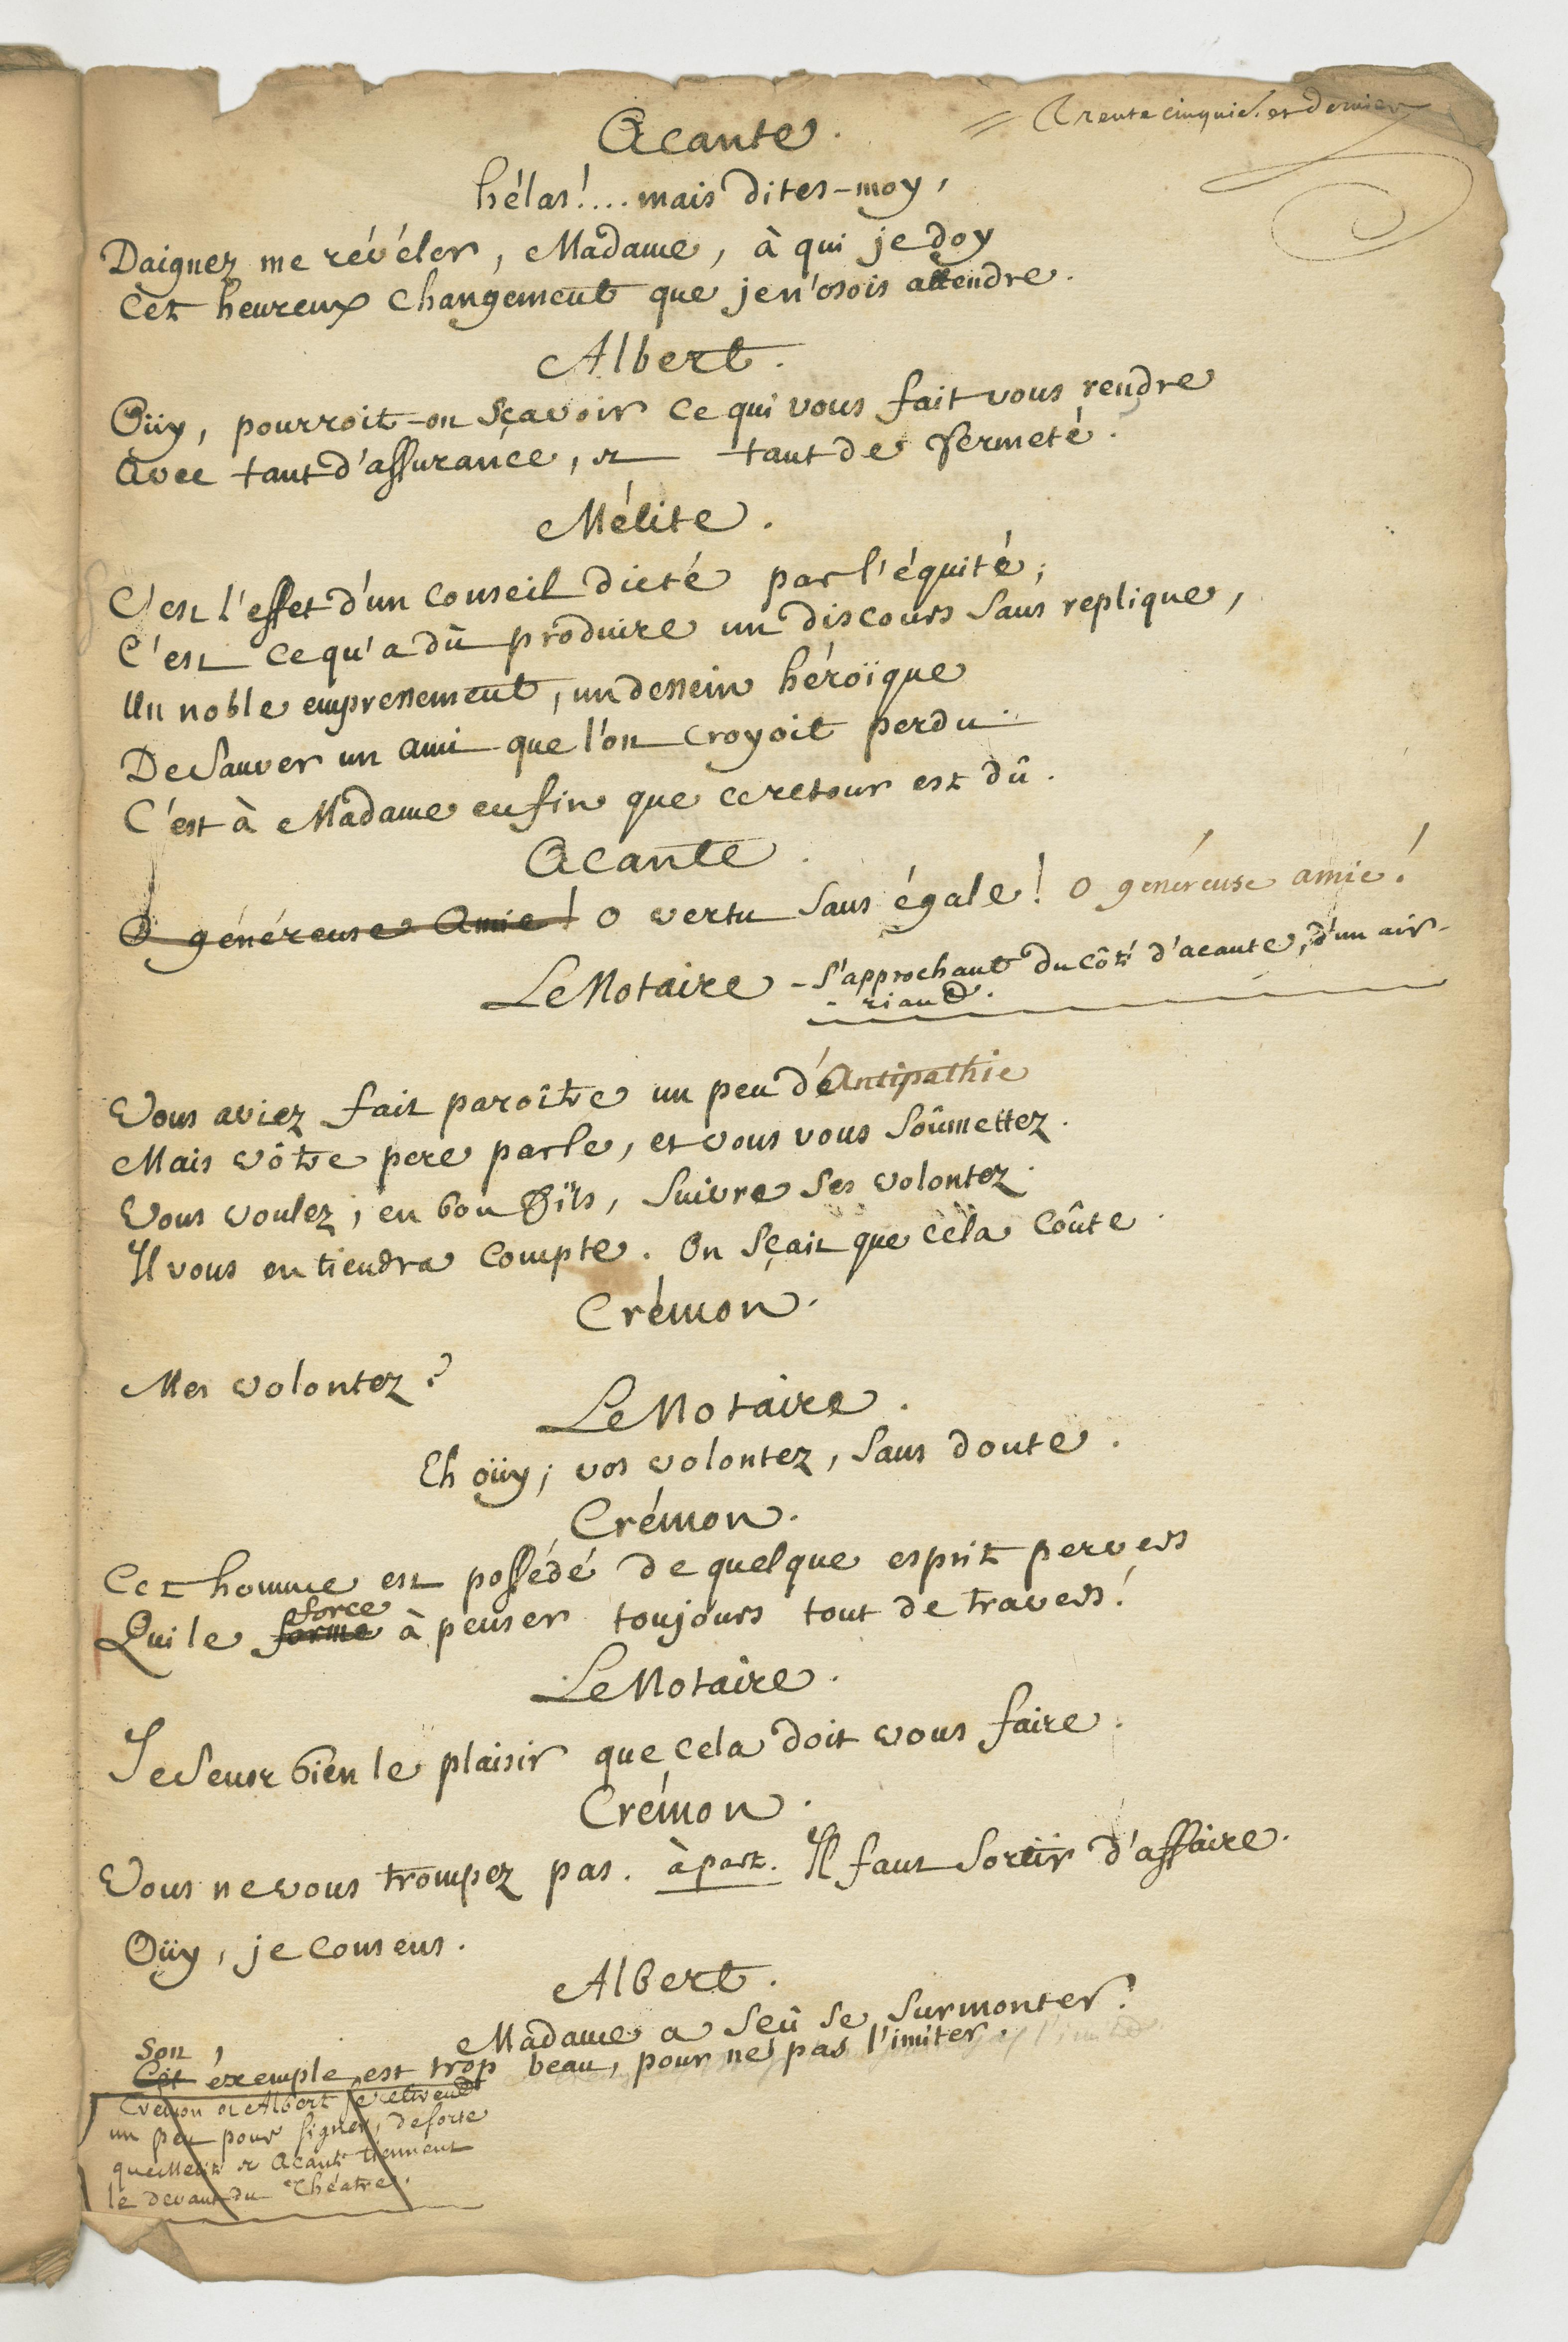 = Trente cinquie. et dernier
Acante.
hélas!.... mais dites-moy,
Daignez me révéler, Madame, à qui je doy
Cet heureux changement que je n'osois attendre.
Albert.
Oüy, pourroit-on sçavoir ce qui vous fait vous rendre
Avec tant d'assurance, et tant de fermeté.
Mélite.
C'est l'effet d'un conseil dicté par l'équité;
C'est ce qu'a dû produire un discours sans replique,
Un noble empressement, un dessein héroïque
De sauver un ami que l'on croyoit perdu.
C'est à Madame enfin que ce retour est dû.
Acante.
O généreuse Amie! O vertu sans égale! O généreuse amie!
Le Notaire - s'approchant du côté d'acante, d'un air-
- riand.
Vous aviez fait paroître un peu d'Antipathie
Mais vôtre pere parle, et vous vous soûmettez.
Vous voulez, en bon Fils, suivre ses volontez.
Il vous en tiendra compte. On sçait que cèla coûte.
Crémon.
Mes volontez?
Le Notaire.
Eh oüy; vos volontez, sans doute.
Crémon.
Cet homme est possédé de quelque esprit pervers
force
Qui le forme à penser toujours tout de travers!
Le Notaire.
Je sens bien le plaisir que cela doit vous faire.
Crémon.
Vous ne vous trompez pas. à part. Il faut sortir d'affaire.
Oüy, je consens.
Albert.
Madame a sçû se surmonter.
Son
Cet éxemple est trop beau, pour ne pas l'imiter.
Crémon et Albert se retirent
un peu pour signer, de sorte
que Mélite et Acante tiennent
le devant du Théatre.